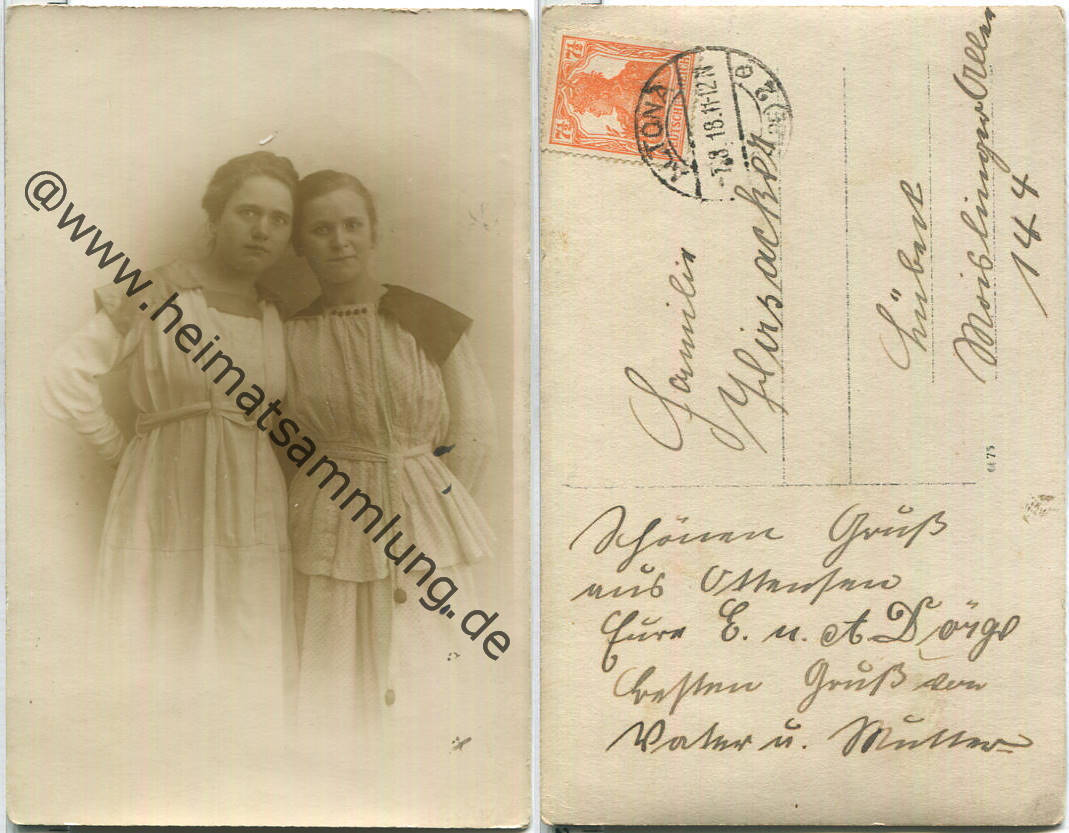 @www.heimatsammlung.de
7½
7½
ALTONA
-7.8.18.11-12N
e
Familie
Lübeck
Moislinger Allee
144
6673
Schönen Gruß
aus Ottensen
Eure E. u. A. Dörge
besten Gruß von
Vater u. Mutter